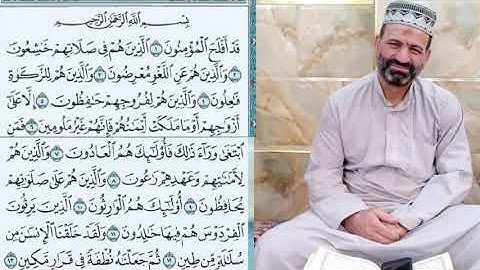 بِسْمِ اللَّهِ الرَّحْمَٰنِ الرَّحِيمِ
قَدْ أَفْلَحَ الْمُؤْمِنُونَ ١ الَّذِينَ هُمْ فِي صَلَاتِهِمْ خَاشِعُونَ
٢ وَالَّذِينَ هُمْ عَنِ اللَّغْوِ مُعْرِضُونَ ٣ وَالَّذِينَ هُمْ لِلزَّكَوٰةِ
فَاعِلُونَ ٤ وَالَّذِينَ هُمْ لِفُرُوجِهِمْ حَافِظُونَ ٥ إِلَّا عَلَىٰ
أَزْوَاجِهِمْ أَوْ مَا مَلَكَتْ أَيْمَانُهُمْ فَإِنَّهُمْ غَيْرُ مَلُومِينَ ٦ فَمَنِ
ابْتَغَىٰ وَرَاءَ ذَٰلِكَ فَأُولَٰئِكَ هُمُ الْعَادُونَ ٧ وَالَّذِينَ هُمْ
لِأَمَانَاتِهِمْ وَعَهْدِهِمْ رَاعُونَ ٨ وَالَّذِينَ هُمْ عَلَىٰ صَلَوَاتِهِمْ
يُحَافِظُونَ ٩ أُولَٰئِكَ هُمُ الْوَارِثُونَ ١٠ الَّذِينَ يَرِثُونَ
الْفِرْدَوْسَ هُمْ فِيهَا خَالِدُونَ ١١ وَلَقَدْ خَلَقْنَا الْإِنسَانَ مِن
سُلَالَةٍ مِّن طِينٍ ١٢ ثُمَّ جَعَلْنَاهُ نُطْفَةً فِي قَرَارٍ مَّكِينٍ ١٣